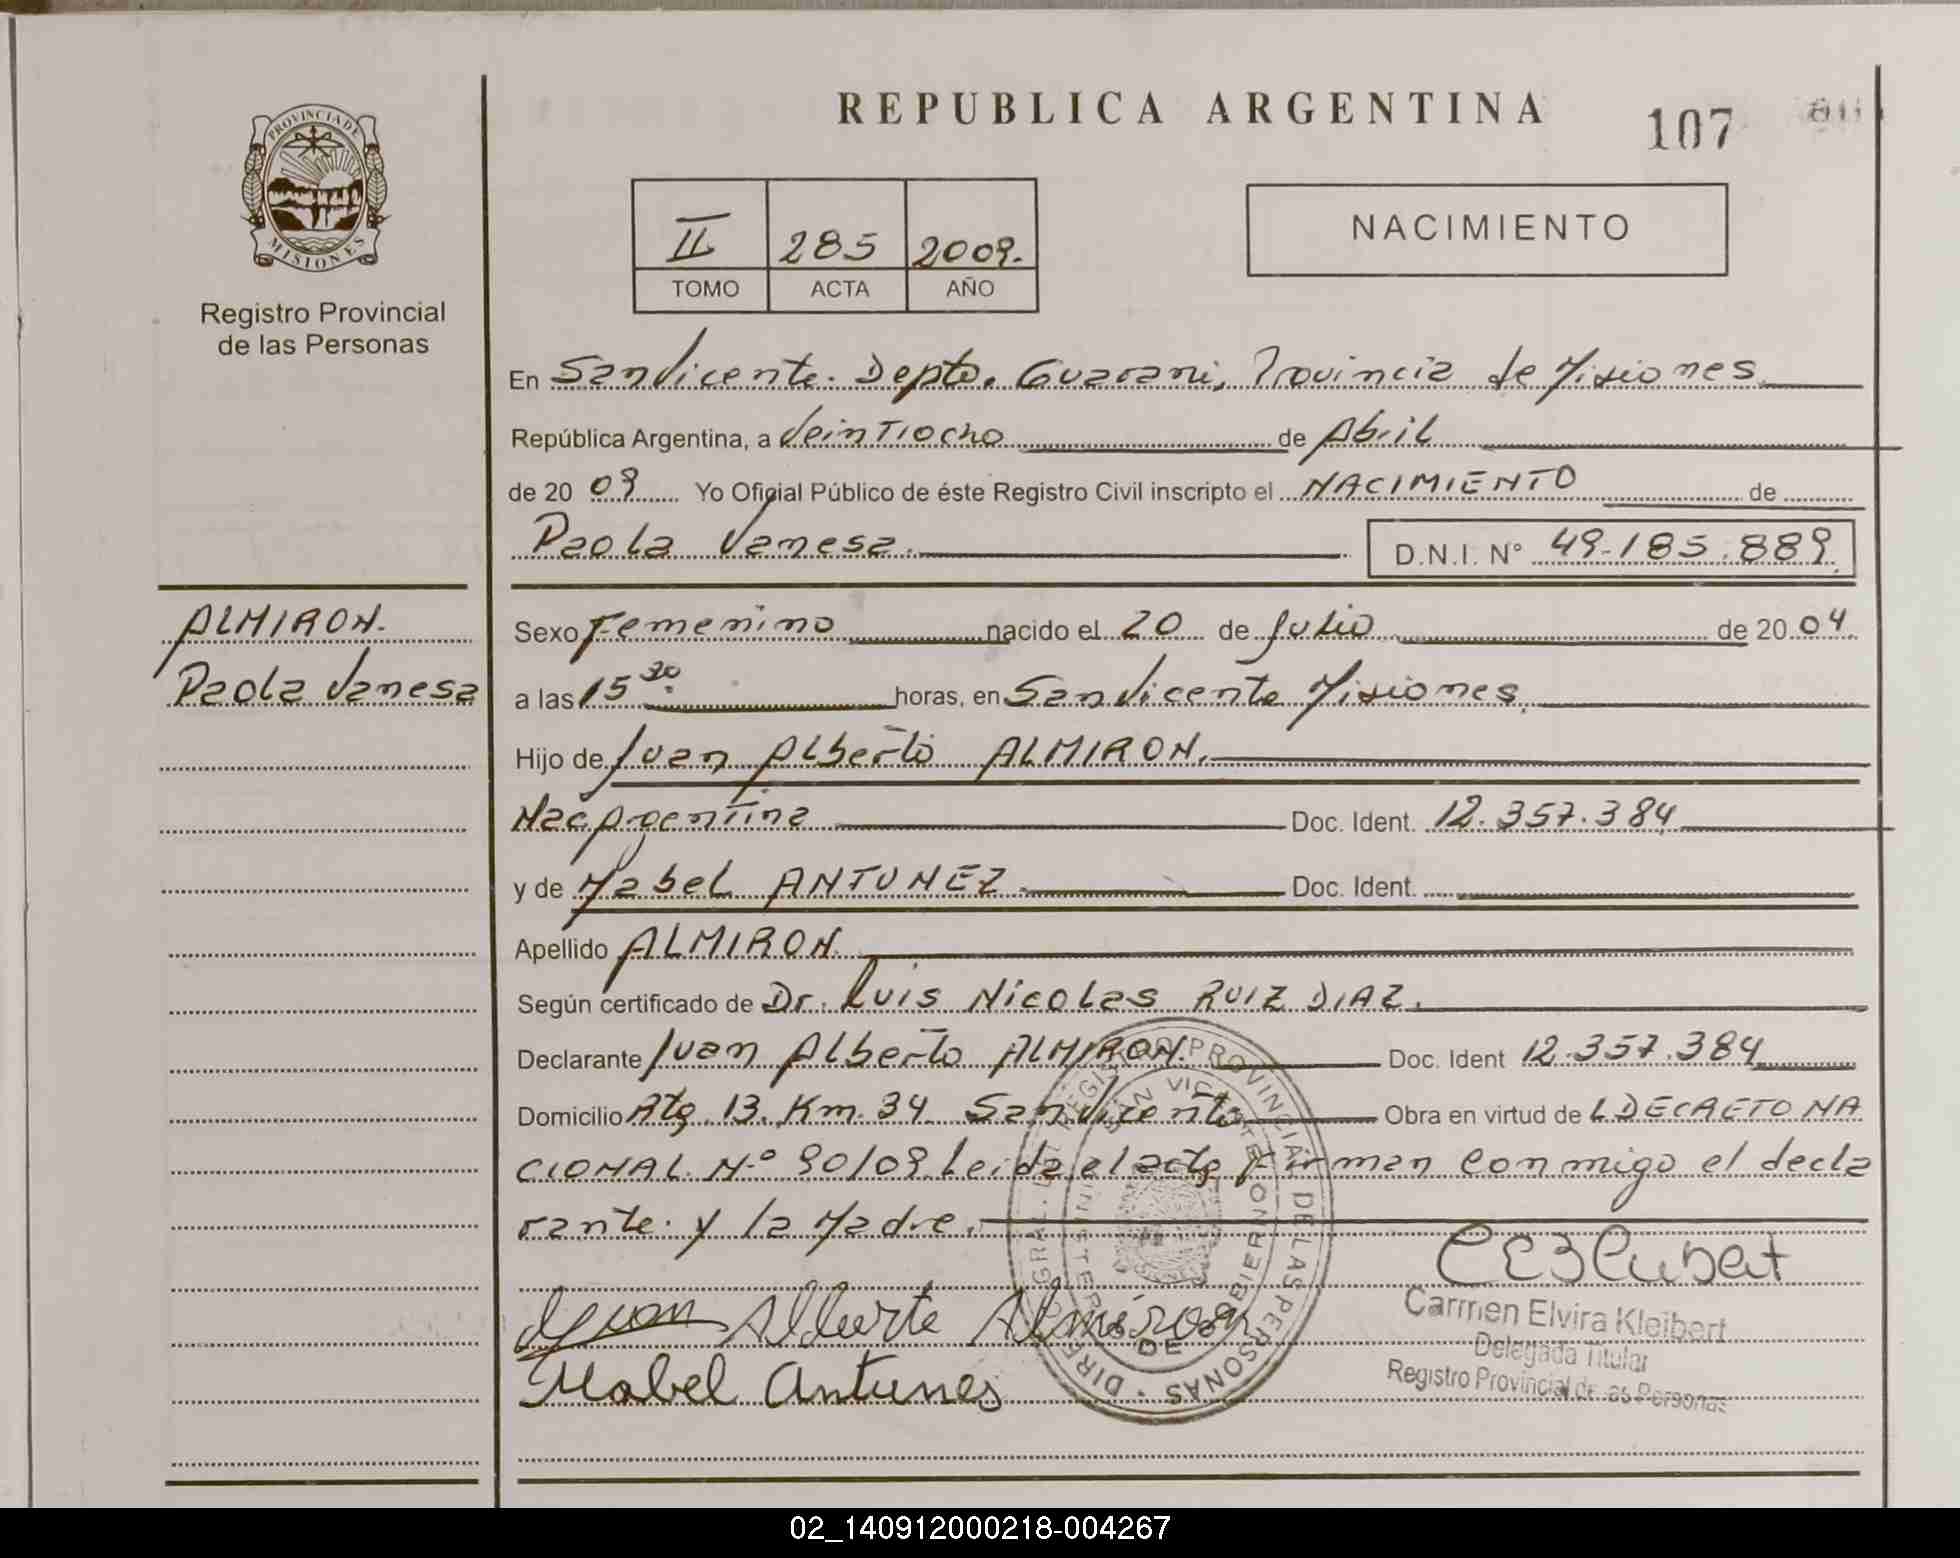 REPUBLICA ARGENTINA
107
PROVINCIA DE
MISIONES
Registro Provincial
de las Personas
II 285 2009.
TOMO ACTA AÑO
NACIMIENTO
En San Vicente. Depto. Guarani, Provincia de Misiones
República Argentina, a Veintiocho de Abril
de 20 09 Yo Oficial Público de éste Registro Civil inscripto el NACIMIENTO de
Paola Vanesa. D.N.I. N° 49.185.889
ALMIRON.
Paola Vanesa
Sexo Femenino nacido el 20 de Julio de 20 04
a las 15 30 horas, en San Vicente Misiones
Hijo de Juan Alberto ALMIRON.
Nac Argentina Doc. Ident. 12.357.384
y de Mabel ANTUNEZ Doc. Ident.
Apellido ALMIRON
Según certificado de Dr. Luis Nicolas RUIZ DIAZ.
Declarante Juan Alberto ALMIRON. Doc. Ident 12.357.384
Domicilio Rta 13. Km. 34. San Vicente Obra en virtud de L DECRETO NA
CIONAL. N.° 90/09. Leida el acta Firman Conmigo el decla
rante. y la Madre.
Juan Alberto Almiron
Mabel Antunes
Carmen Elvira Kleibert
Delegada Titular
Registro Provincial de las Personas
DIREC GRAL. DEL REGISTRO PROVINCIAL DE LAS PERSONAS
SAN VICENTE
MINISTERIO DE GOBIERNO
02_140912000218-004267